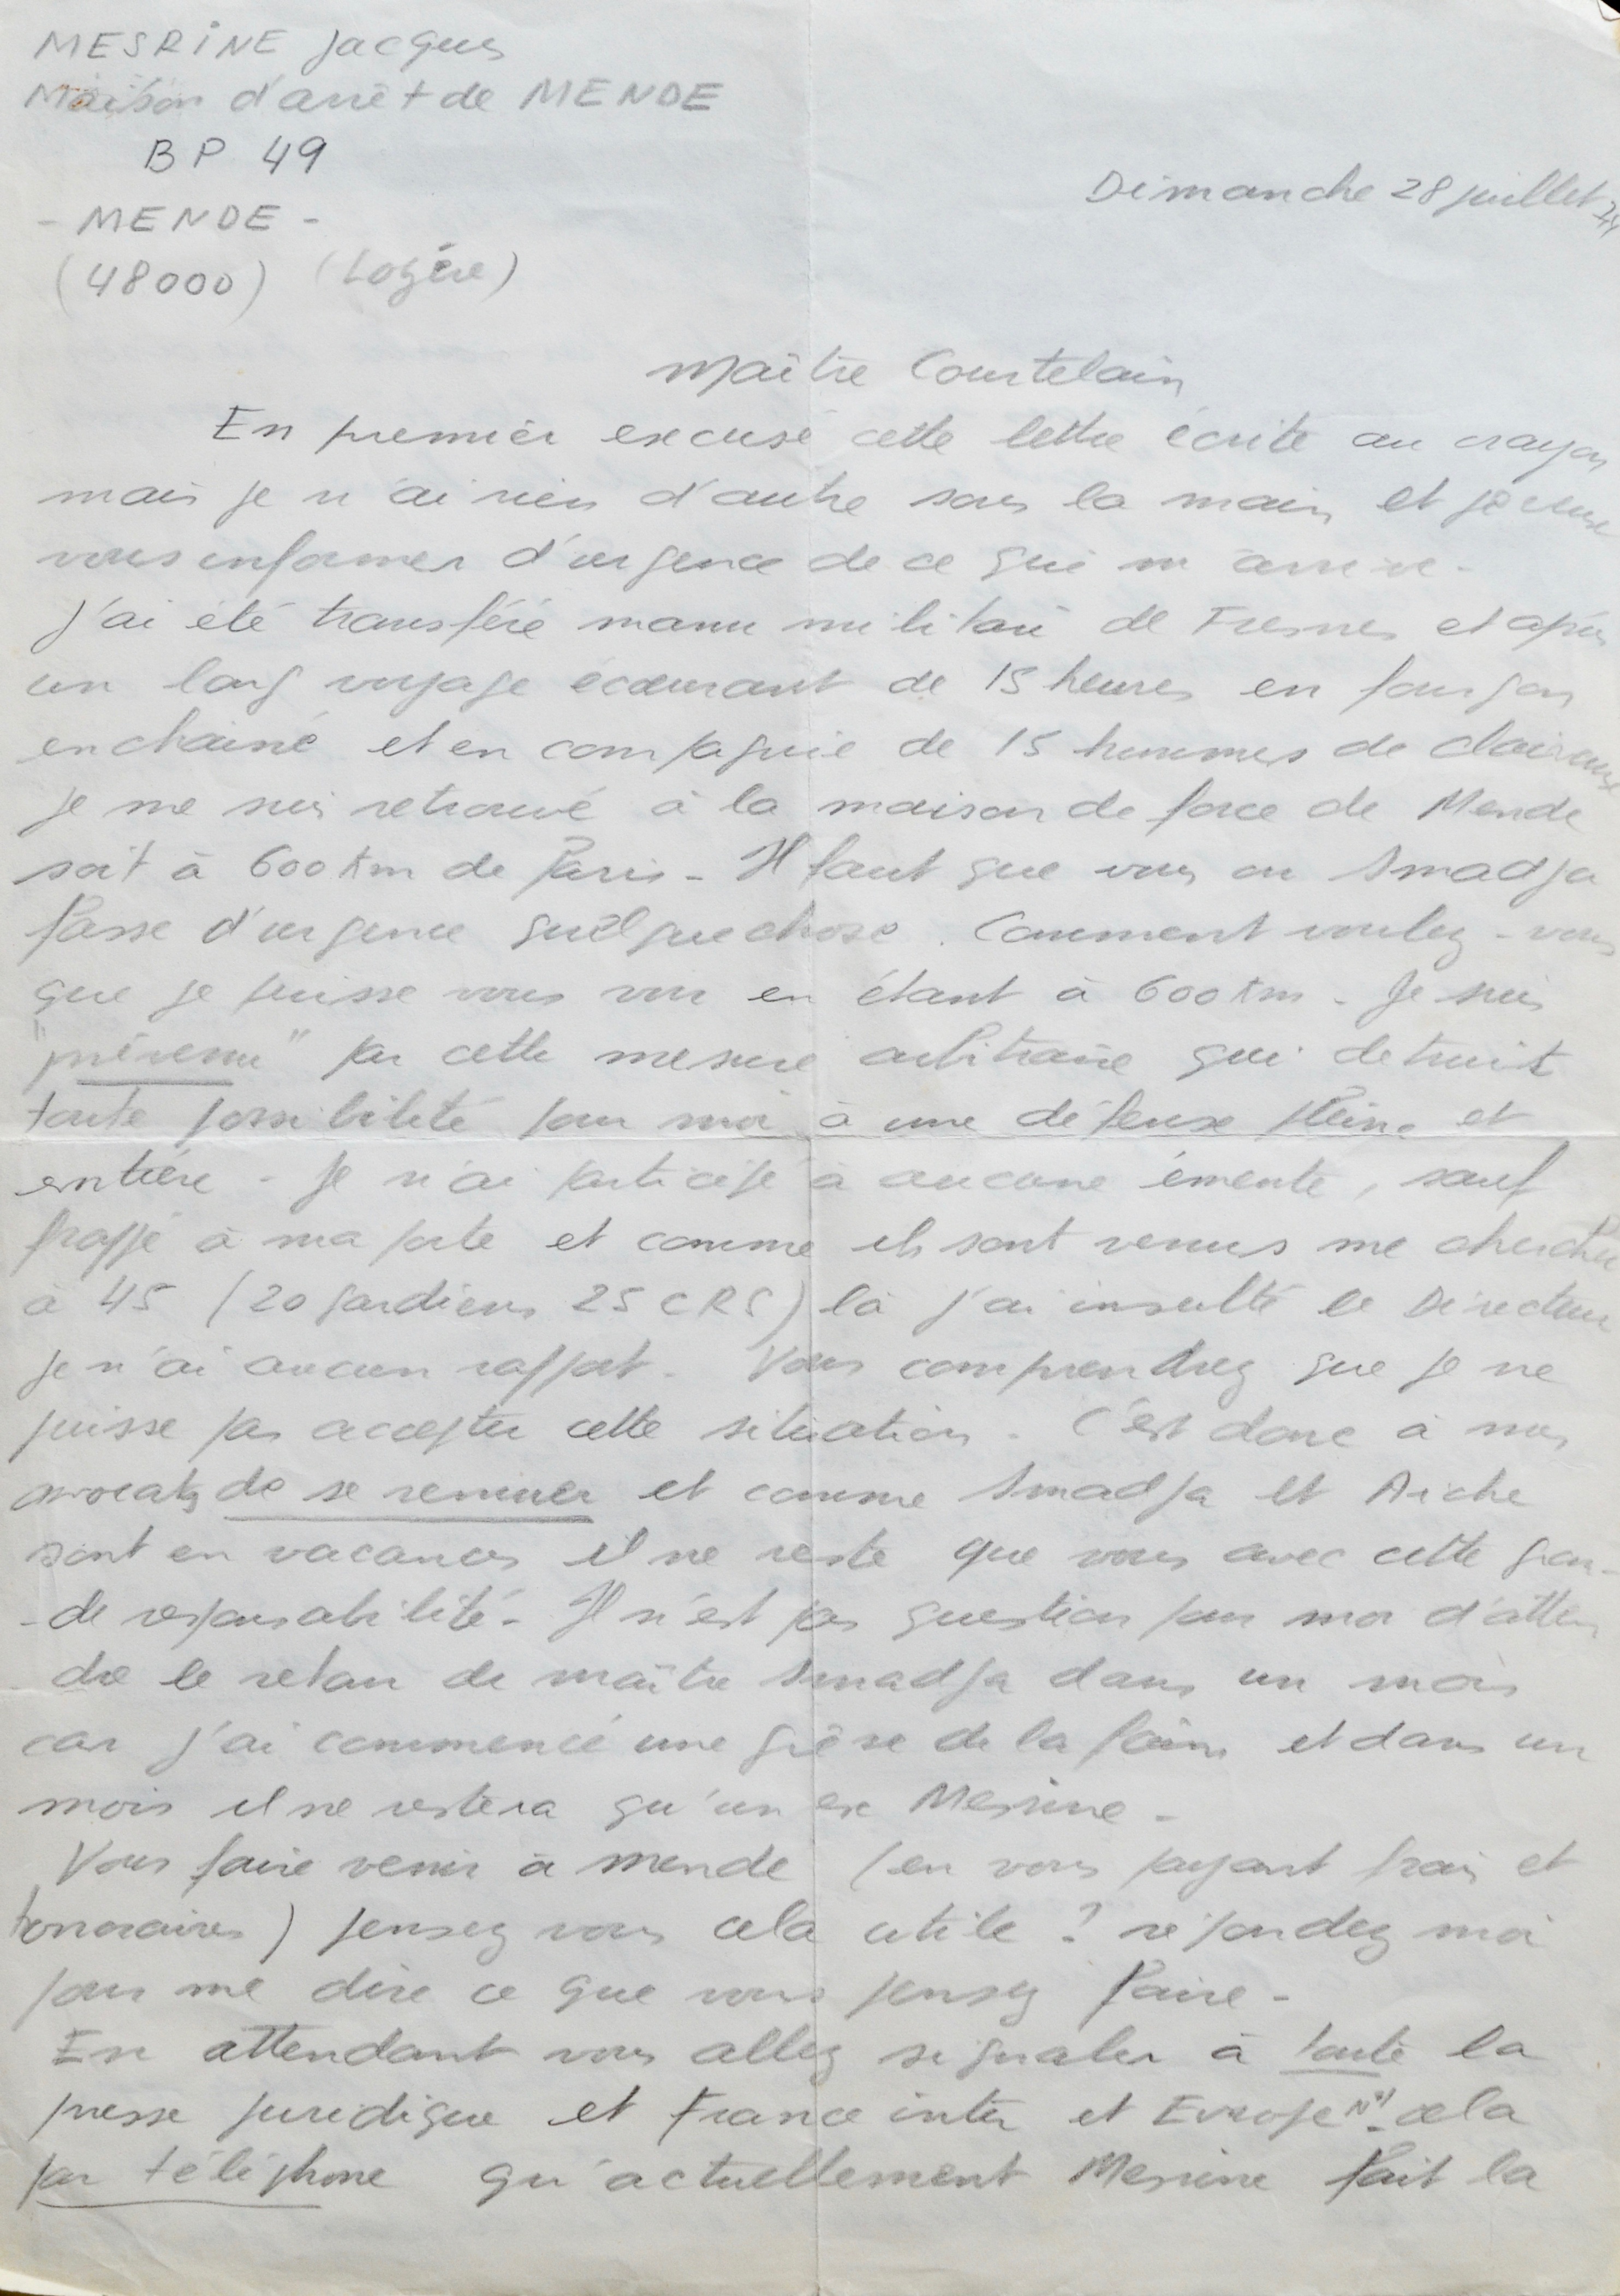 MESRINE Jacques
Maison d'arrêt de MENDE
BP 49
Dimanche 28 juillet 74
- MENDE -
(48000) (Lozére)
Maître Courtelain
En premier excusé cette lettre écrite au crayon
mais je n'ai rien d'autre sous la main et je veux
vous informer d'urgence de ce qui m'arrive -
J'ai été transféré manu militari de Fresnes et après
un long voyage écœurant de 15 heures en fourgon
enchainé et en compagnie de 15 hommes de clairvaux
je me suis retrouvé à la maison de force de Mende
soit à 600 km de Paris - Il faut que vous ou Smadja
fasse d'urgence quelque chose. Comment voulez-vous
que je puisse vous voir en étant à 600 km - Je suis
"prévenu" par cette mesure arbitraire qui detruit
toute possibilité pour moi à une défense pleine et
entière - Je n'ai participé à aucune émeute, sauf
frappé à ma porte et comme ils sont venus me chercher
à 45 (20 gardiens 25 CRS) là j'ai insulté le Directeur
je n'ai aucun rapport - Vous comprendrez que je ne
puisse pas accepter cette situation. C'est donc à mes
avocats de se remuer et comme Smadja et Aiche
sont en vacances il ne reste que vous avec cette gran-
-de responsabilité - Il n'est pas question pour moi d'atten
dre le retour de maître Smadja dans un mois
car j'ai commencé une grève de la faim et dans un
mois il ne restera qu'un ex Mesrine -
Vous faire venir à mende (en vous payant frais et
honoraires) pensez vous cela utile ? repondez moi
pour me dire ce que vous pensez faire -
En attendant vous allez signaler à toute la
presse juridique et France inter et Europe N°1 - cela
par téléphone qu'actuellement Mesrine fait la